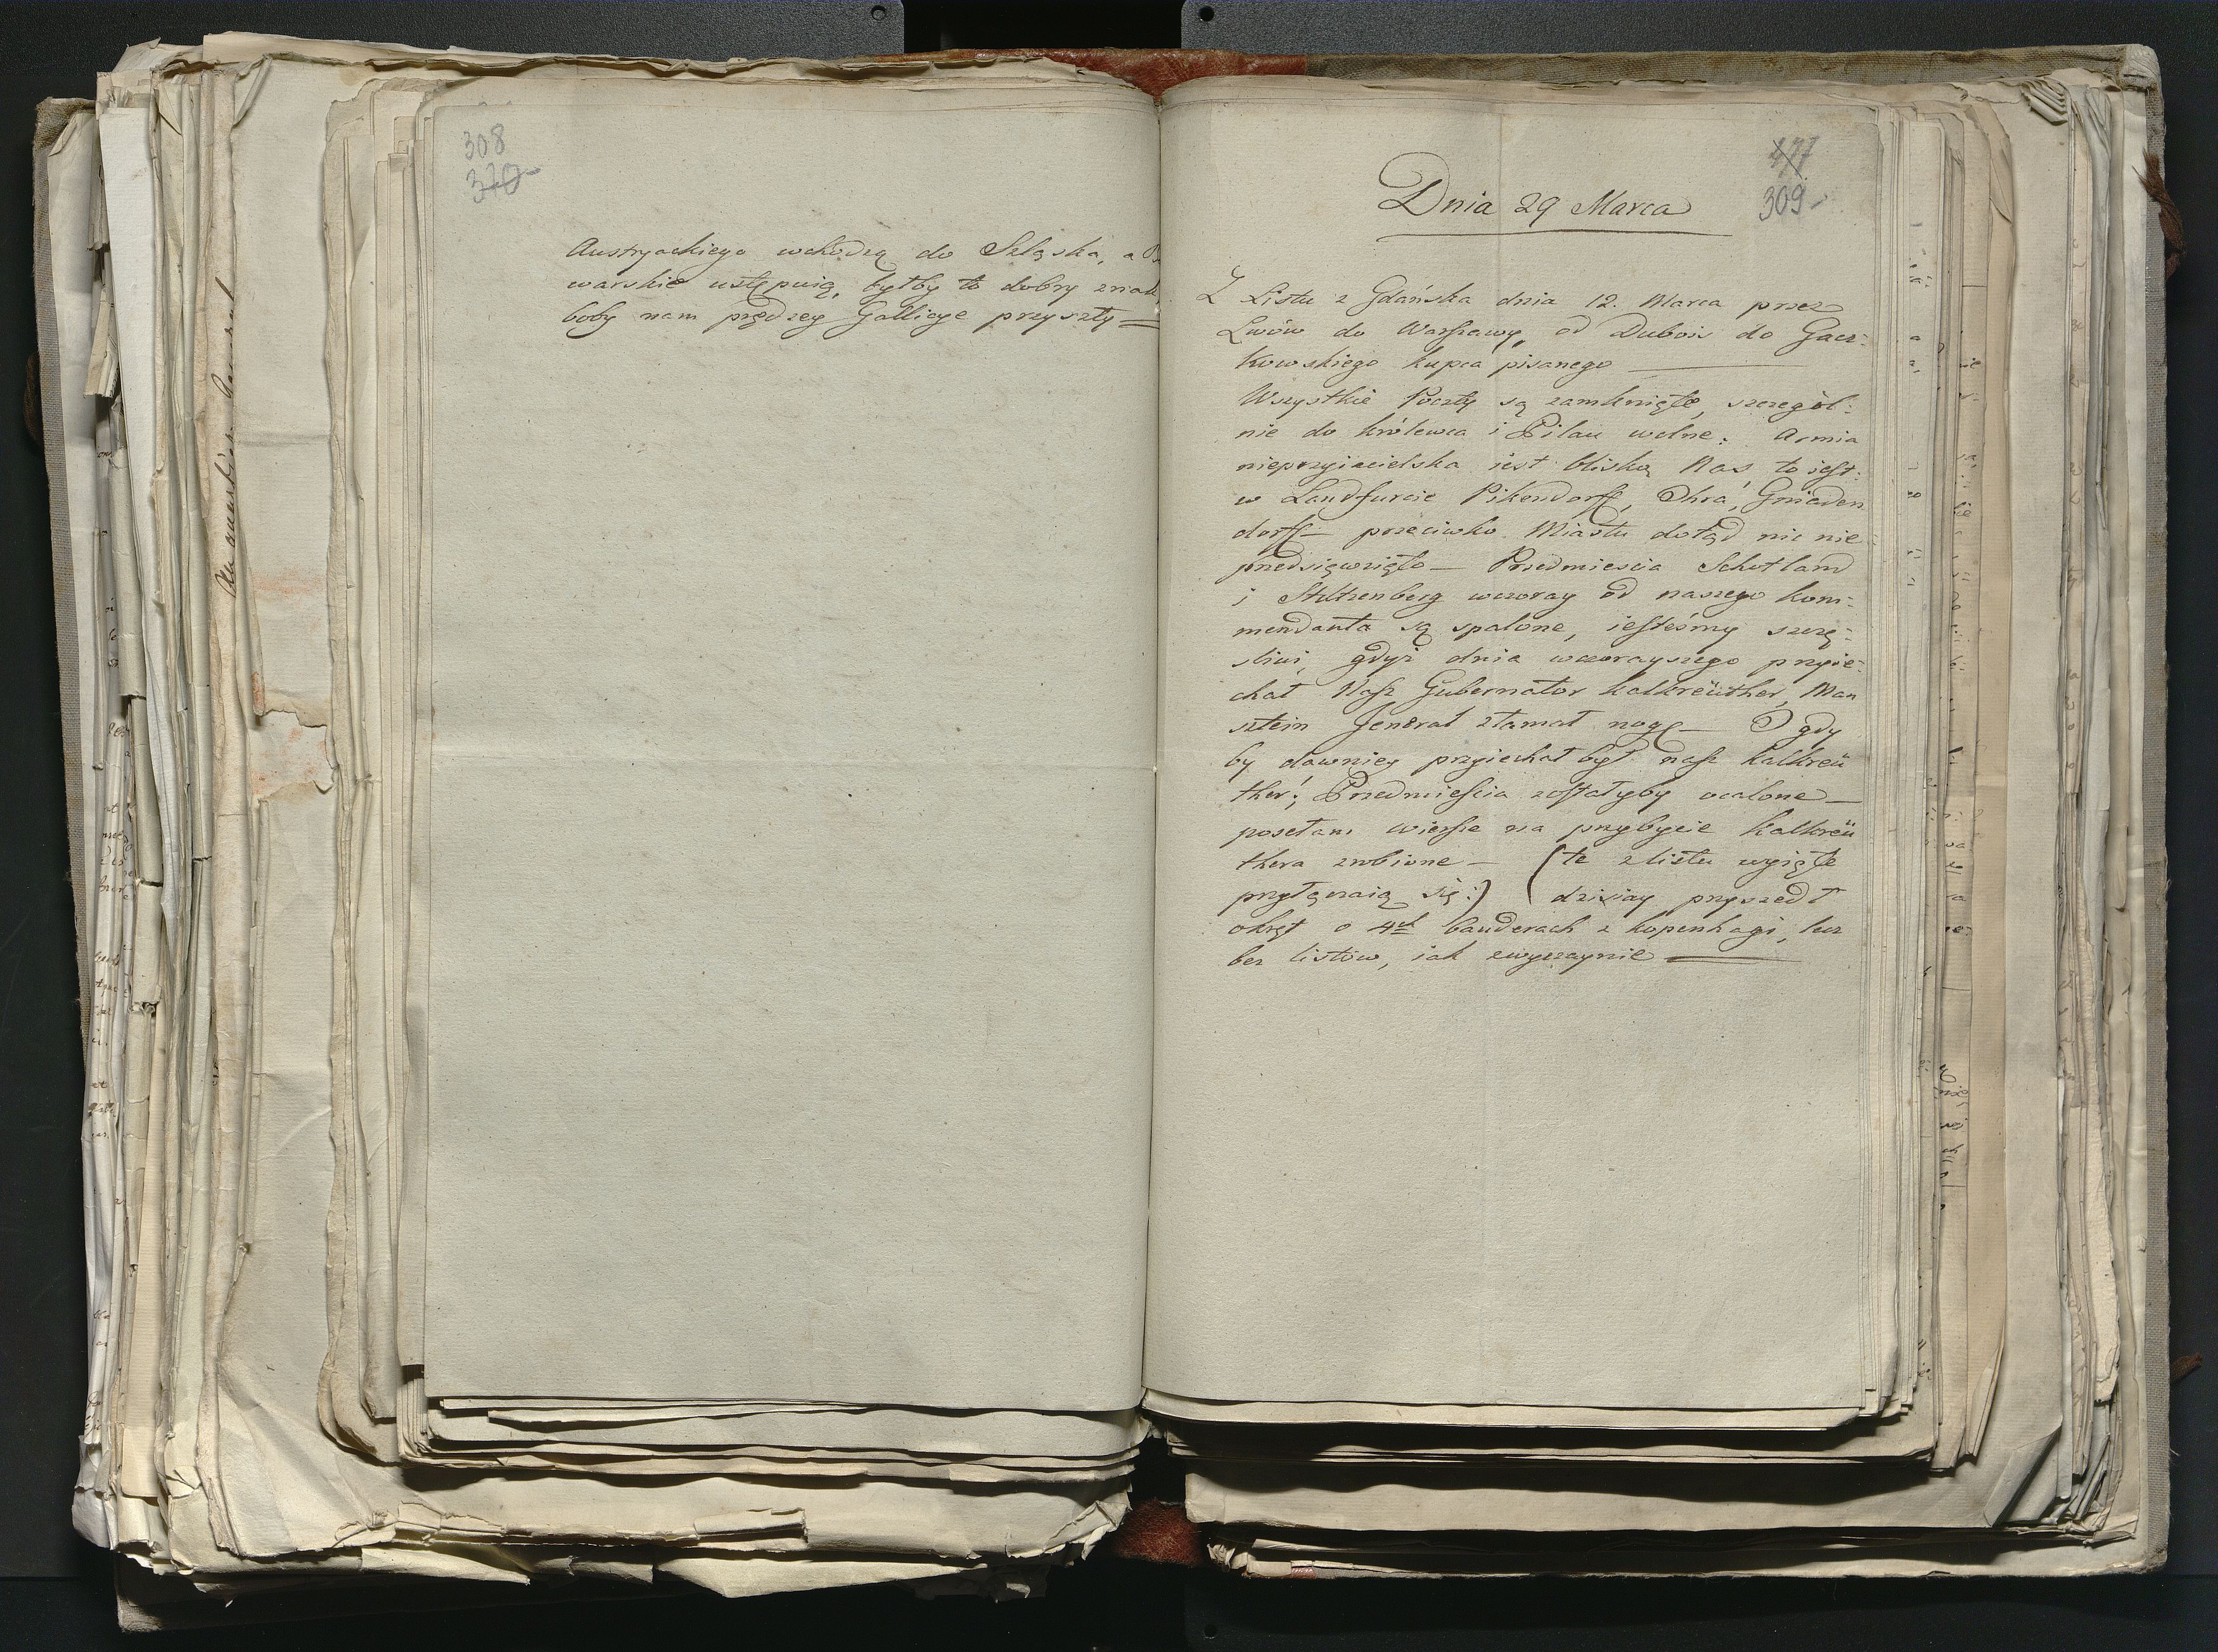 308
370
Austryackiego wchodzą do Szląska, a
warskie ustępuią, byłby to dobry znak,
boby nam prędzey Gallicye przyszły
477
309.
Dnia 29 Marca
Z Listu z Gdańska dnia 12. Marca przez
Lwów do Warszawy, od Dubois do Gacz:
kowskiego kupca pisanego
Wszystkie Poczty są zamknięte, szczegól:
nie do królewca i Pilau wolne. Armia
nieprzyiacielska iest blisko Nas, to iest:
w Landfurcie Pikendorff, Ohra, Gnieden
dorff – przeciwko Miastu dotąd nic nie
przedsięwzięto – Przedmieścia Schotland
i Stiltzenberg wczoray od naszego kom:
mendanta są spalone, iesteśmy szczę:
śliwi, gdyż dnia wczorayszego przyie:
chał Nasz Gubernator Kalkreüther, Man
sztein Jenerał złamał nogę – I gdy
by dawniey przyiechał był nasz Kalkreü
ther; Przedmieścia zostałyby ocalone –
posełam wiersze na przybycie Kalkreü
thera zrobione – (te z listu wyięte
przyłączaią się:) dzisiay przyszedł
okręt o 4ch banderach z kopenhagi, lecz
bez listów, iak zwyczaynie